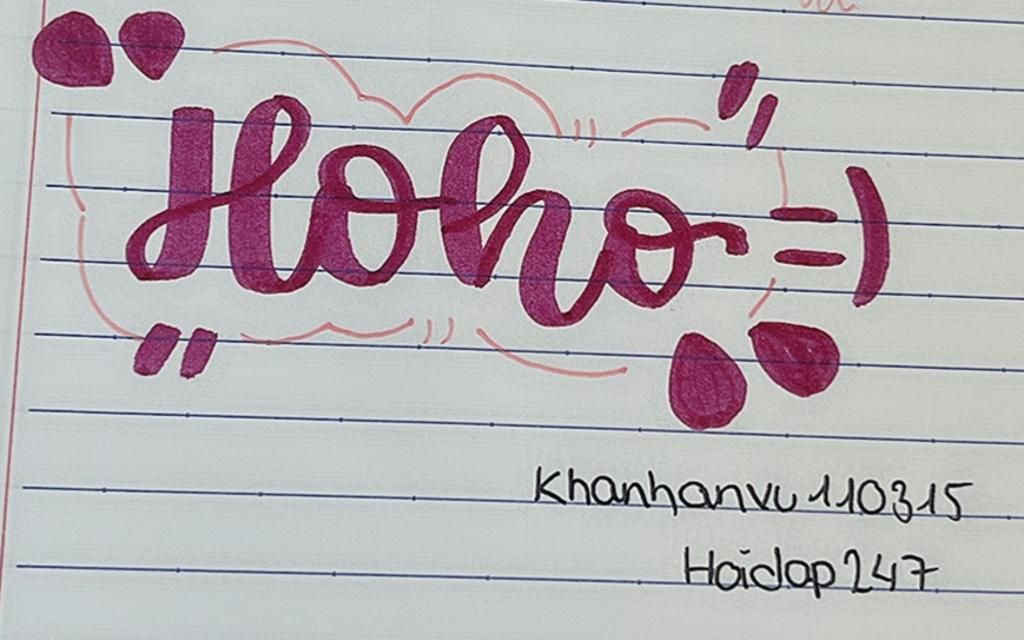 Hoho =)
Khanhanvu110315
Hoidap247